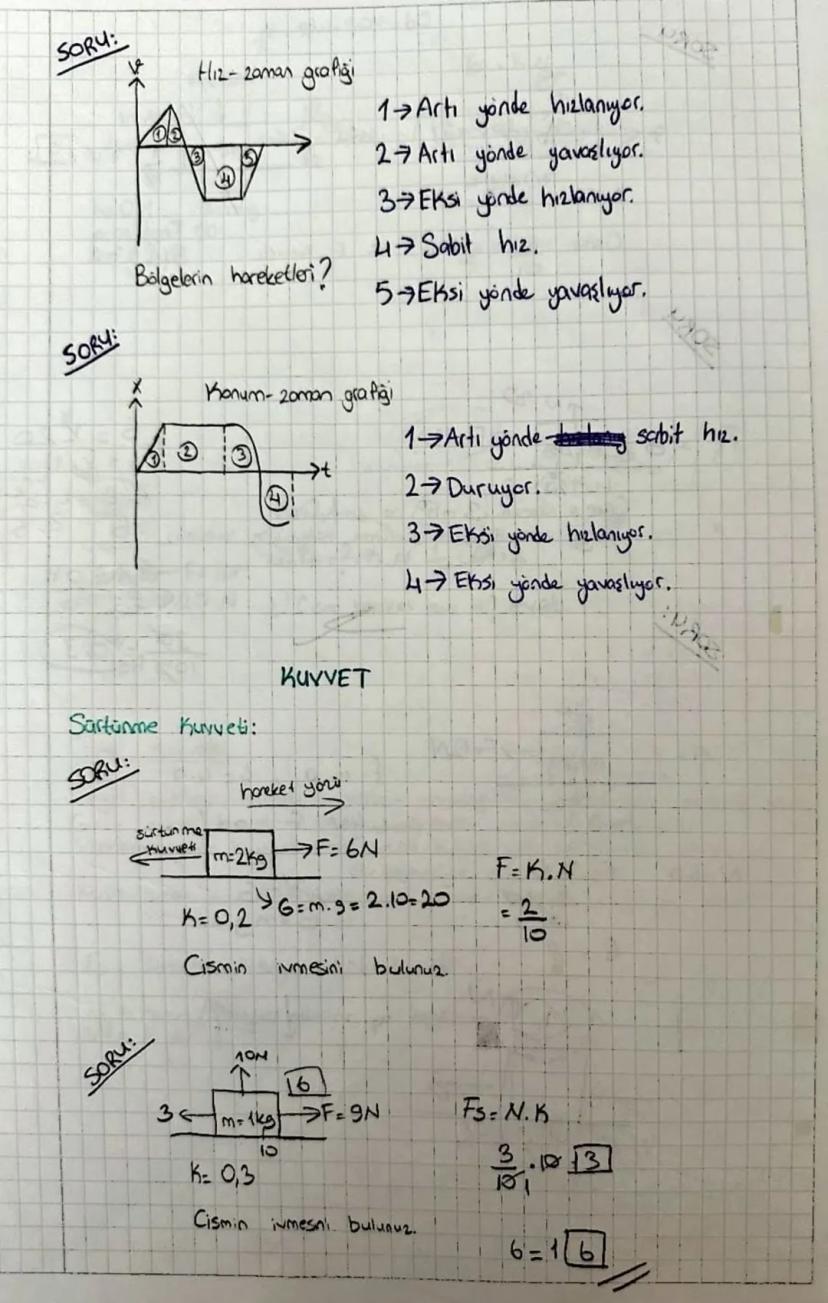 SORU:
V
Hız-zaman grafiği
① ② ③ ④ ⑤
1→Artı yönde hızlanıyor.
2→Artı yönde yavaşlıyor.
3→Eksi yönde hızlanıyor.
4→Sabit hız.
5→Eksi yönde yavaşlıyor.
Bölgelerin hareketleri?
SORU:
X
Konum-zaman grafiği
① ② ③ ④
t
1→Artı yönde sabit hız.
2→Duruyor.
3→Eksi yönde hızlanıyor.
4→Eksi yönde yavaşlıyor.
KUVVET
Sürtünme Kuvveti:
SORU:
hareket yönü
sürtünme
kuvveti
m=2kg
F=6N
K=0,2
G=m.g=2.10=20
F=K.N
= 2/10
Cismin ivmesini bulunuz.
SORU:
10N
6
3
m=1kg
F=9N
10
K=0,3
Fs=N.K
3/10 1 .10 3
Cismin ivmesni bulunuz.
6=1 6